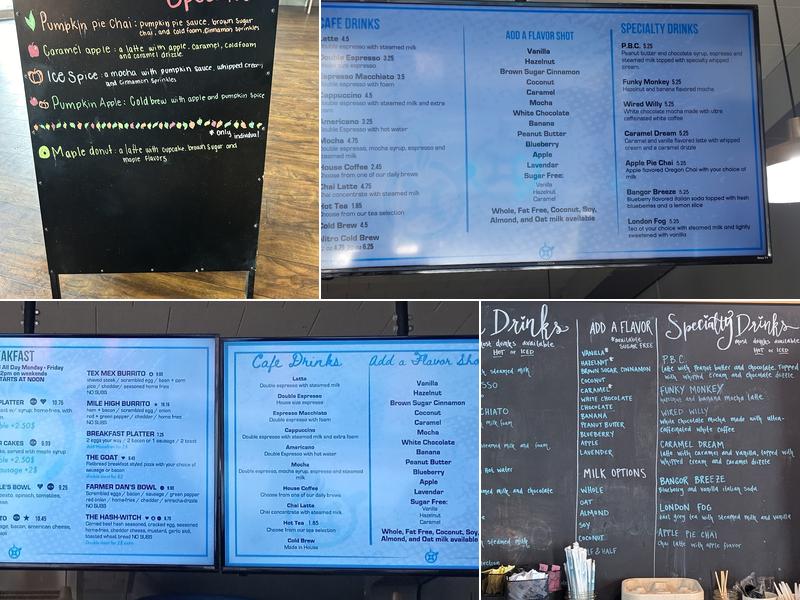 Pumpkin pie Chai: pumpkin pie sauce, brown sugar
chai, and cold foam, cinnamon sprinkles
Caramel apple: a latte with apple, caramel, coldfoam
and caramel drizzle
Ice Spice: a mocha with pumpkin sauce, whipped cream,
and cinnamon sprinkles
Pumpkin Apple: Cold brew with apple and pumpkin spice
* only
Maple donut: a latte with cupcake, brown sugar and
maple flavors
CAFE DRINKS
Latte 4.5
Double espresso with steamed milk
Double Espresso 3.25
House size espresso
Espresso Macchiato 3.5
Double espresso with foam
Cappuccino 4.5
Double espresso with steamed milk and extra
foam
Americano 3.25
Double Espresso with hot water
Mocha 4.75
Double espresso, mocha syrup, espresso and
steamed milk
House Coffee 2.45
Choose from one of our daily brews
Chai Latte 4.75
Chai concentrate with steamed milk
Hot Tea 1.85
Choose from our tea selection
Cold Brew 4.5
Nitro Cold Brew
6.25
ADD A FLAVOR SHOT
Vanilla
Hazelnut
Brown Sugar Cinnamon
Coconut
Caramel
Mocha
White Chocolate
Banana
Peanut Butter
Blueberry
Apple
Lavendar
Sugar Free:
Vanilla
Hazelnut
Caramel
Whole, Fat Free, Coconut, Soy,
Almond, and Oat milk available
SPECIALTY DRINKS
P.B.C. 5.25
Peanut butter and chocolate syrup, espresso and
steamed milk topped with specialty whipped
cream.
Funky Monkey 5.25
Hazelnut and banana flavored mocha
Wired Willy 5.25
White chocolate mocha made with ultra
caffeinated white coffee
Caramel Dream 5.25
Caramel and vanilla flavored latte with whipped
cream and a caramel drizzle
Apple Pie Chai 5.25
Apple flavored Oregon Chai with your choice of
milk
Bangor Breeze 5.25
Blueberry flavored italian soda topped with fresh
blueberries and a lemon slice
London Fog 5.25
Tea of your choice with steamed milk and lightly
sweetened with vanilla
AKFAST
All Day Monday - Friday
2pm on weekends
STARTS AT NOON
PLATTER 10.75
+2.50$
CAKES 9.99
served with maple syrup
+2.50$
sausage +2$
LE'S BOWL 9.25
TO 10.45
TEX MEX BURRITO 9.99
shaved steak / scrambled egg / bean + corn
pico / cheddar / seasoned home fries
NO SUBS
MILE HIGH BURRITO 10.15
ham + bacon / scrambled egg / onion
red + green pepper / cheddar / home fries
NO SUBS
BREAKFAST PLATTER 7.25
2 eggs your way / 2 bacon or 1 sausage / 2 toast
THE GOAT 9.45
Flatbread breakfast styled pizza with your choice of
sausage or bacon
FARMER DAN'S BOWL
Scrambled eggs / bacon / sausage / green pepper
red onion / home fries / cheddar / sriracha drizzle
NO SUBS
THE HASH-WITCH 8.75
Corned beef hash seasoned, cracked egg, seasoned
home fries, cheddar cheese, mustard, garlic aioli,
toasted wheat bread NO SUBS
Cafe Drinks
Latte
Double espresso with steamed milk
Double Espresso
House size espresso
Espresso Macchiato
Double espresso with foam
Cappuccino
Double espresso with steamed milk and extra foam
Americano
Double Espresso with hot water
Mocha
Double espresso, mocha syrup, espresso and steamed
milk
House Coffee
Choose from one of our daily brews
Chai Latte
Chai concentrate with steamed milk
Hot Tea 1.85
Choose from our tea selection
Cold Brew
Made in House
Add a Flavor Sho
Vanilla
Hazelnut
Brown Sugar Cinnamon
Coconut
Caramel
Mocha
White Chocolate
Banana
Peanut Butter
Blueberry
Apple
Lavendar
Sugar Free:
Vanilla
Hazelnut
Caramel
Whole, Fat Free, Coconut, Soy,
Almond, and Oat milk available
Drinks
most drinks available
HOT or ICED
steamed milk
SSO
CHIATO
milk foam
steamed milk and foam
hot water
steamed milk and chocolate
steamed milk
ADD A FLAVOR
*available
SUGAR FREE
VANILLA*
HAZELNUT*
BROWN SUGAR CINNAMON
COCONUT
CARAMEL*
WHITE CHOCOLATE
CHOCOLATE
BANANA
PEANUT BUTTER
BLUEBERRY
APPLE
LAVENDER
MILK OPTIONS
WHOLE
OAT
ALMOND
SOY
COCONUT
& HALF
Specialty Drinks
most drinks available
HOT or ICED
P.B.C.
Latte with Peanut butter and chocolate. Topped
with whipped cream and chocolate drizzle
FUNKY MONKEY
Hazelnut and banana mocha latte
WIRED WILLY
White chocolate mocha made with ultra-
caffeinated white coffee
CARAMEL DREAM
Latte with caramel and vanilla, topped with
whipped cream and caramel drizzle
BANGOR BREEZE
Blueberry and vanilla italian soda
LONDON FOG
Earl grey tea with steamed milk and vanilla
APPLE PIE CHAI
Chai latte with apple flavor